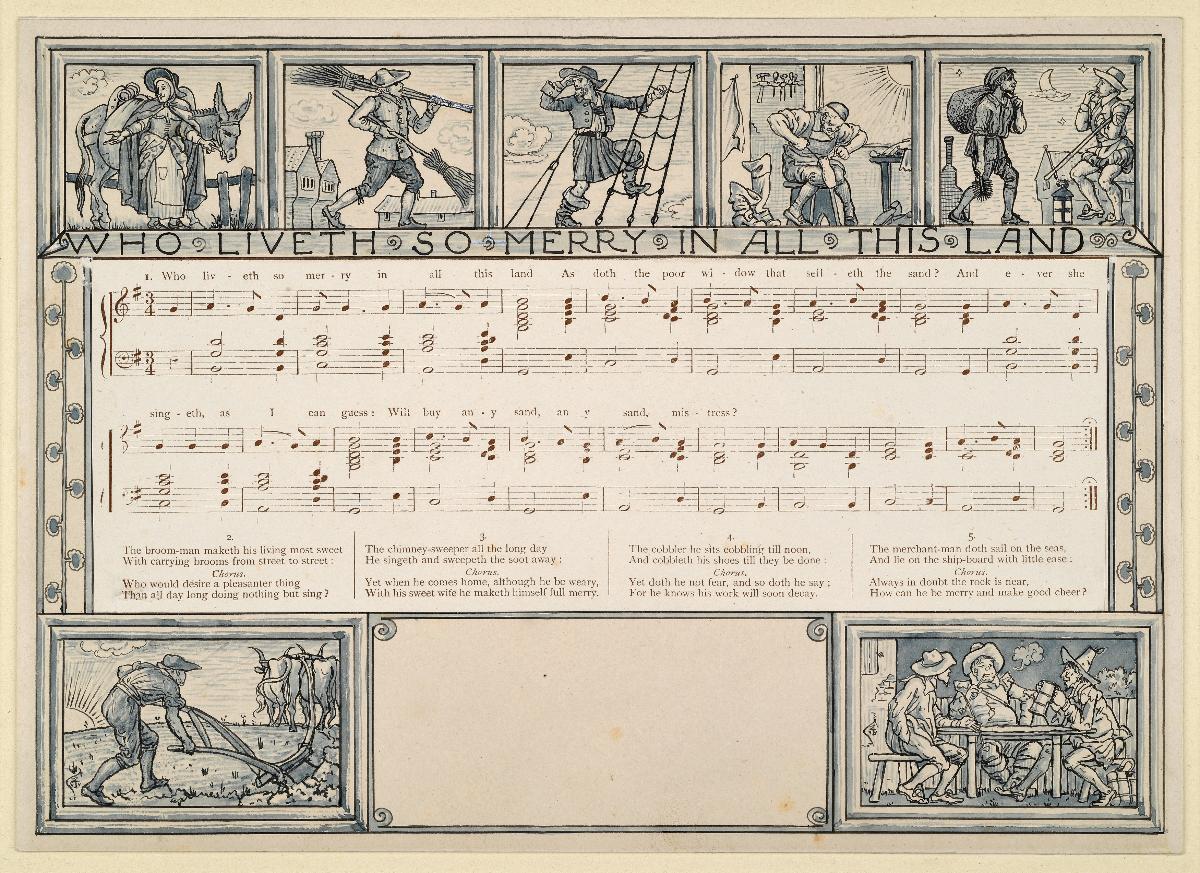 WHO LIVETH SO MERRY IN ALL THIS LAND
1. Who liv - eth so mer - ry in all this land As doth the poor wi - dow that sell - eth the sand? And e - ver she
sing - eth, as I can guess: Will buy an - y sand, an y sand, mis - tress?
2.
The broom-man maketh his living most sweet
With carrying brooms from street to street:
Chorus.
Who would desire a pleasanter thing
Than all day long doing nothing but sing?
3.
The chimney-sweeper all the long day
He singeth and sweepeth the soot away:
Chorus.
Yet when he comes home, although he be weary,
With his sweet wife he maketh himself full merry.
4.
The cobbler he sits cobbling till noon,
And cobbleth his shoes till they be done:
Chorus.
Yet doth he not fear, and so doth he say;
For he knows his work will soon decay.
5.
The merchant-man doth sail on the seas,
And lie on the ship-board with little ease:
Chorus.
Always in doubt the rock is near,
How can he be merry and make good cheer?